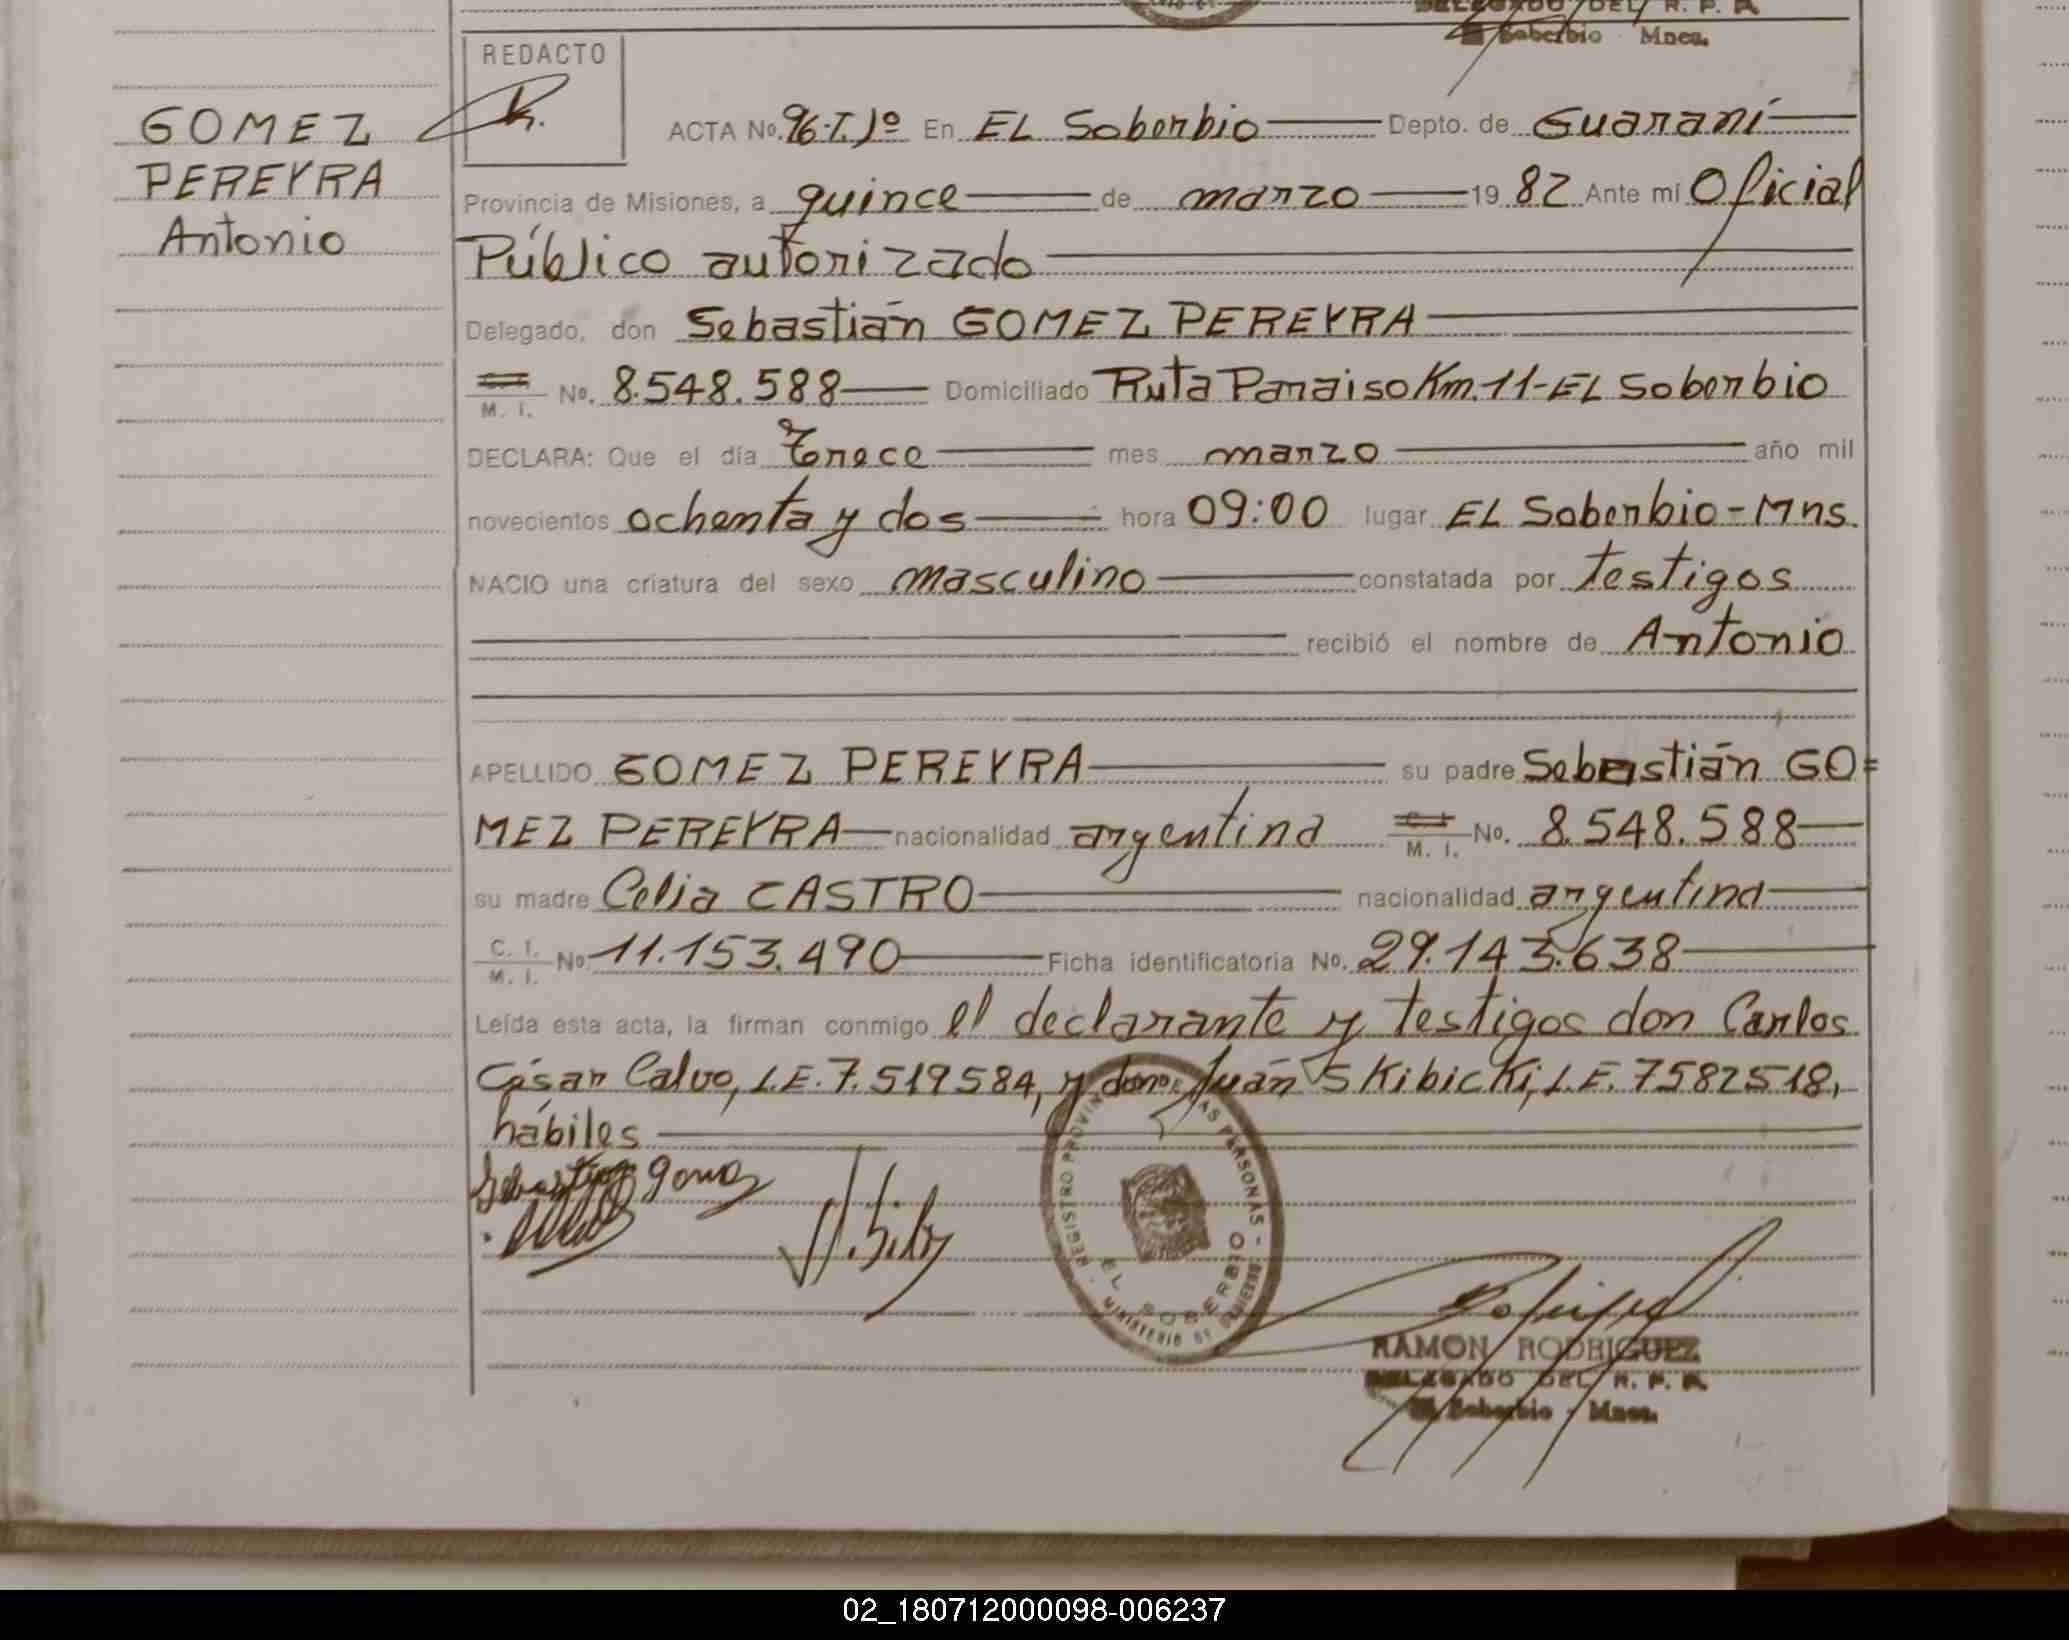 DELEGADO DEL R. P. P.
El Soberbio - Mnes.
REDACTO
GOMEZ
PEREYRA
Antonio
ACTA No. 96-T. Iº En EL Soberbio Depto. de Guaraní
Provincia de Misiones, a quince de marzo 19 82 Ante mí Oficial
Público autorizado
Delegado, don Sebastián GOMEZ PEREYRA
C. I. M. I. No. 8.548.588 Domiciliado Ruta Paraiso Km. 11-EL Soberbio
DECLARA: Que el día Trece mes marzo año mil
novecientos ochenta y dos hora 09:00 lugar EL Soberbio-Mns.
NACIO una criatura del sexo masculino constatada por testigos
recibió el nombre de Antonio
APELLIDO GOMEZ PEREYRA su padre Sebastián GO=
MEZ PEREYRA nacionalidad argentina C. I. M. I. No. 8.548.588
su madre Celia CASTRO nacionalidad argentina
C. I. M. I. No. 11.153.490 Ficha identificatoria No. 29.143.638
Leída esta acta, la firman conmigo el declarante y testigos don Carlos
César Calvo, L.E. 7.519584, y don Juán SKibicKi, L.E. 7582518,
hábiles
Sebastian gomez
REGISTRO PROVINCIAL DE LAS PERSONAS - MINISTERIO DE GOBIERNO -
EL SOBERBIO
RAMON RODRIGUEZ
DELEGADO DEL R. P. P.
El Soberbio - Mnes.
02_180712000098-006237